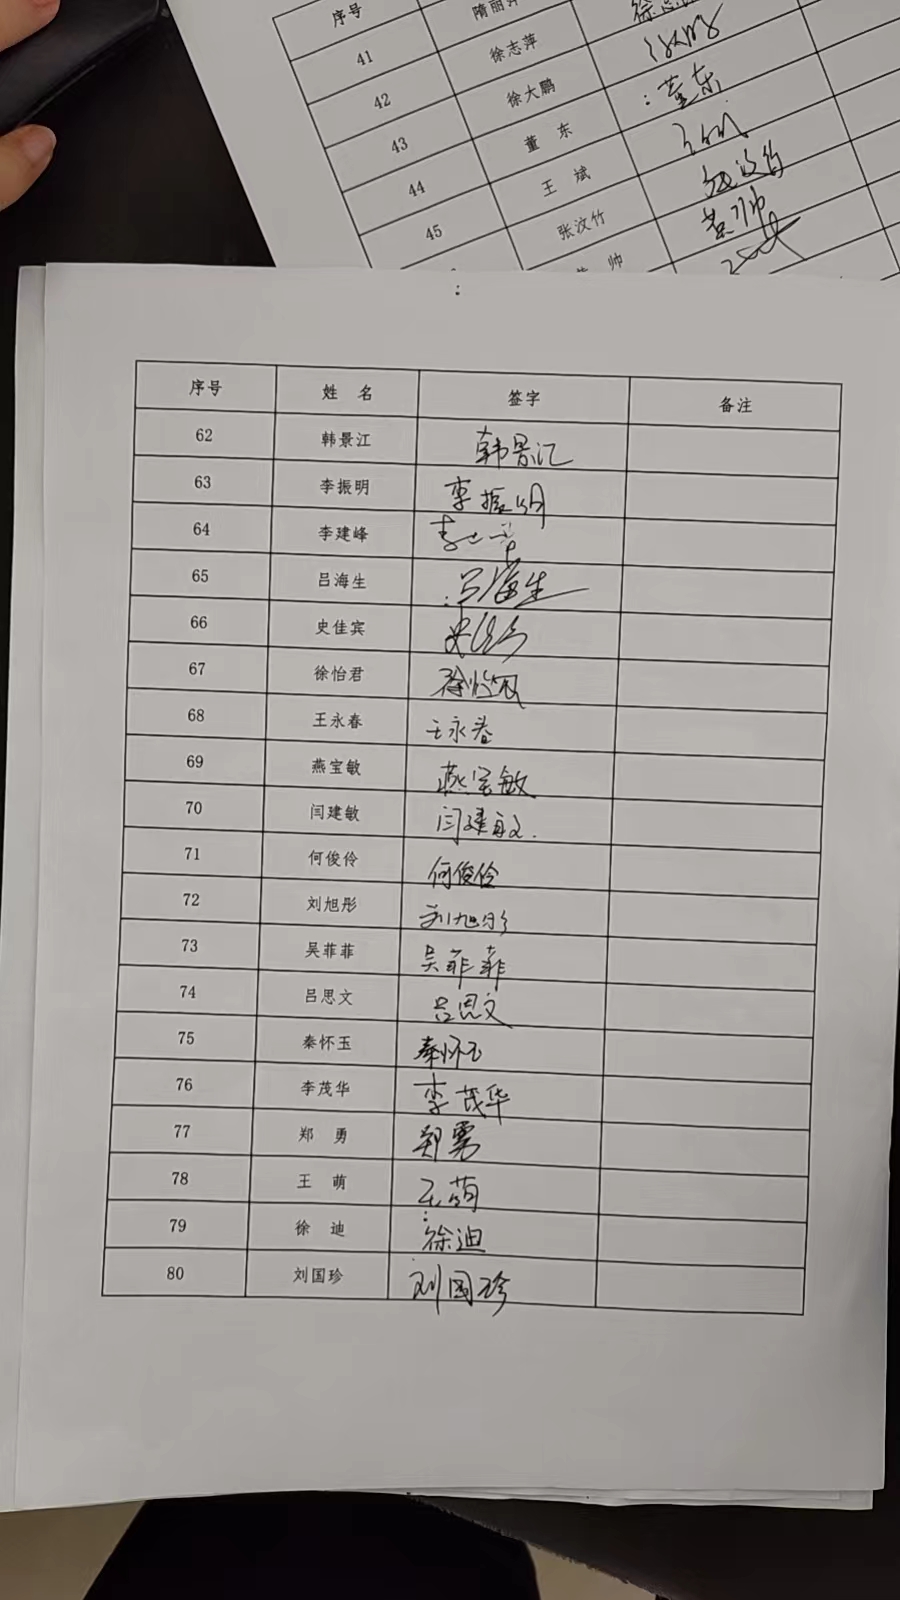 序号
41 隋丽
42 徐志萍 徐志萍
43 徐大鹏
44 董 东 董东
45 王 斌
张汶竹 张汶竹
帅 黄帅
序号 姓 名 签字 备注
62 韩景江 韩景江
63 李振明 李振明
64 李建峰
65 吕海生 吕海生
66 史佳宾 史佳宾
67 徐怡君 徐怡君
68 王永春 王永春
69 燕宝敏 燕宝敏
70 闫建敏 闫建敏
71 何俊伶 何俊伶
72 刘旭彤 刘旭彤
73 吴菲菲 吴菲菲
74 吕思文 吕思文
75 秦怀玉 秦怀玉
76 李茂华 李茂华
77 郑 勇 郑勇
78 王 萌 王萌
79 徐 迪 徐迪
80 刘国珍 刘国珍